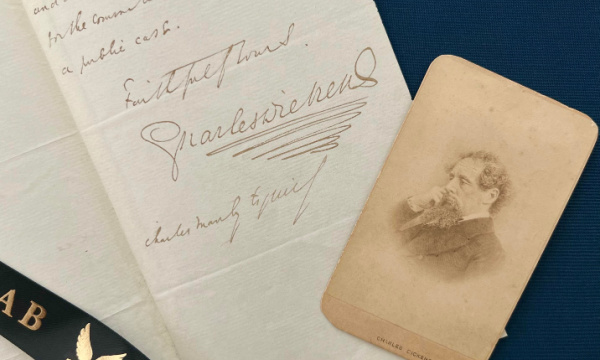 and
for the comm
a public cast.
Faithfully Yours.
Charles Dickens
Charles Manby Esquire
AB
CHARLES DICKENS